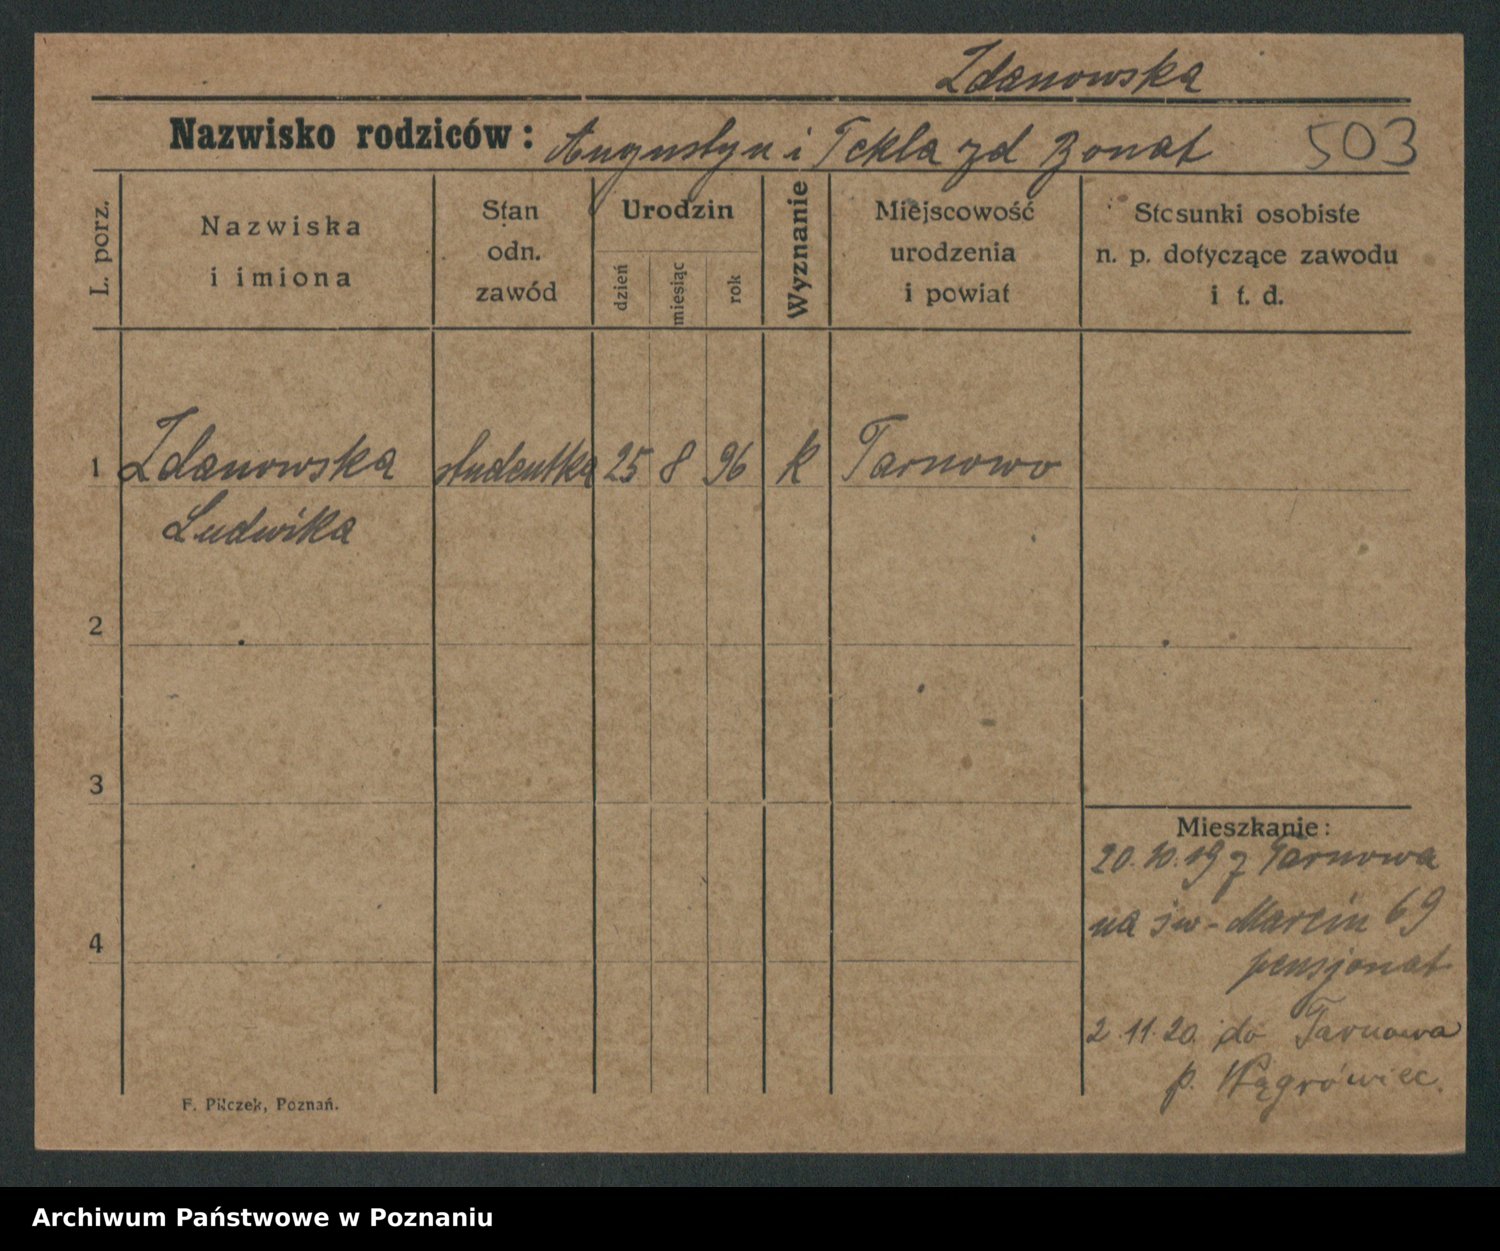 Zdanowska
Nazwisko rodziców: Augustyn i Tekla zd Bonat 503
L. porz.
Nazwiska i imiona
Stan odn. zawód
Urodzin
dzień
miesiąc
rok
Wyznanie
Miejscowość urodzenia i powiat
Stosunki osobiste n. p. dotyczące zawodu i t. d.
1 Zdanowska studentka 25 8 96 k Tarnowo
Ludwika
2
3
4
Mieszkanie:
20.10.19 z Tarnowa
na św. Marcin 69
pensjonat
2.11.20. do Tarnowa
p. Wągrówiec.
F. Pilczek, Poznań.
Archiwum Państwowe w Poznaniu